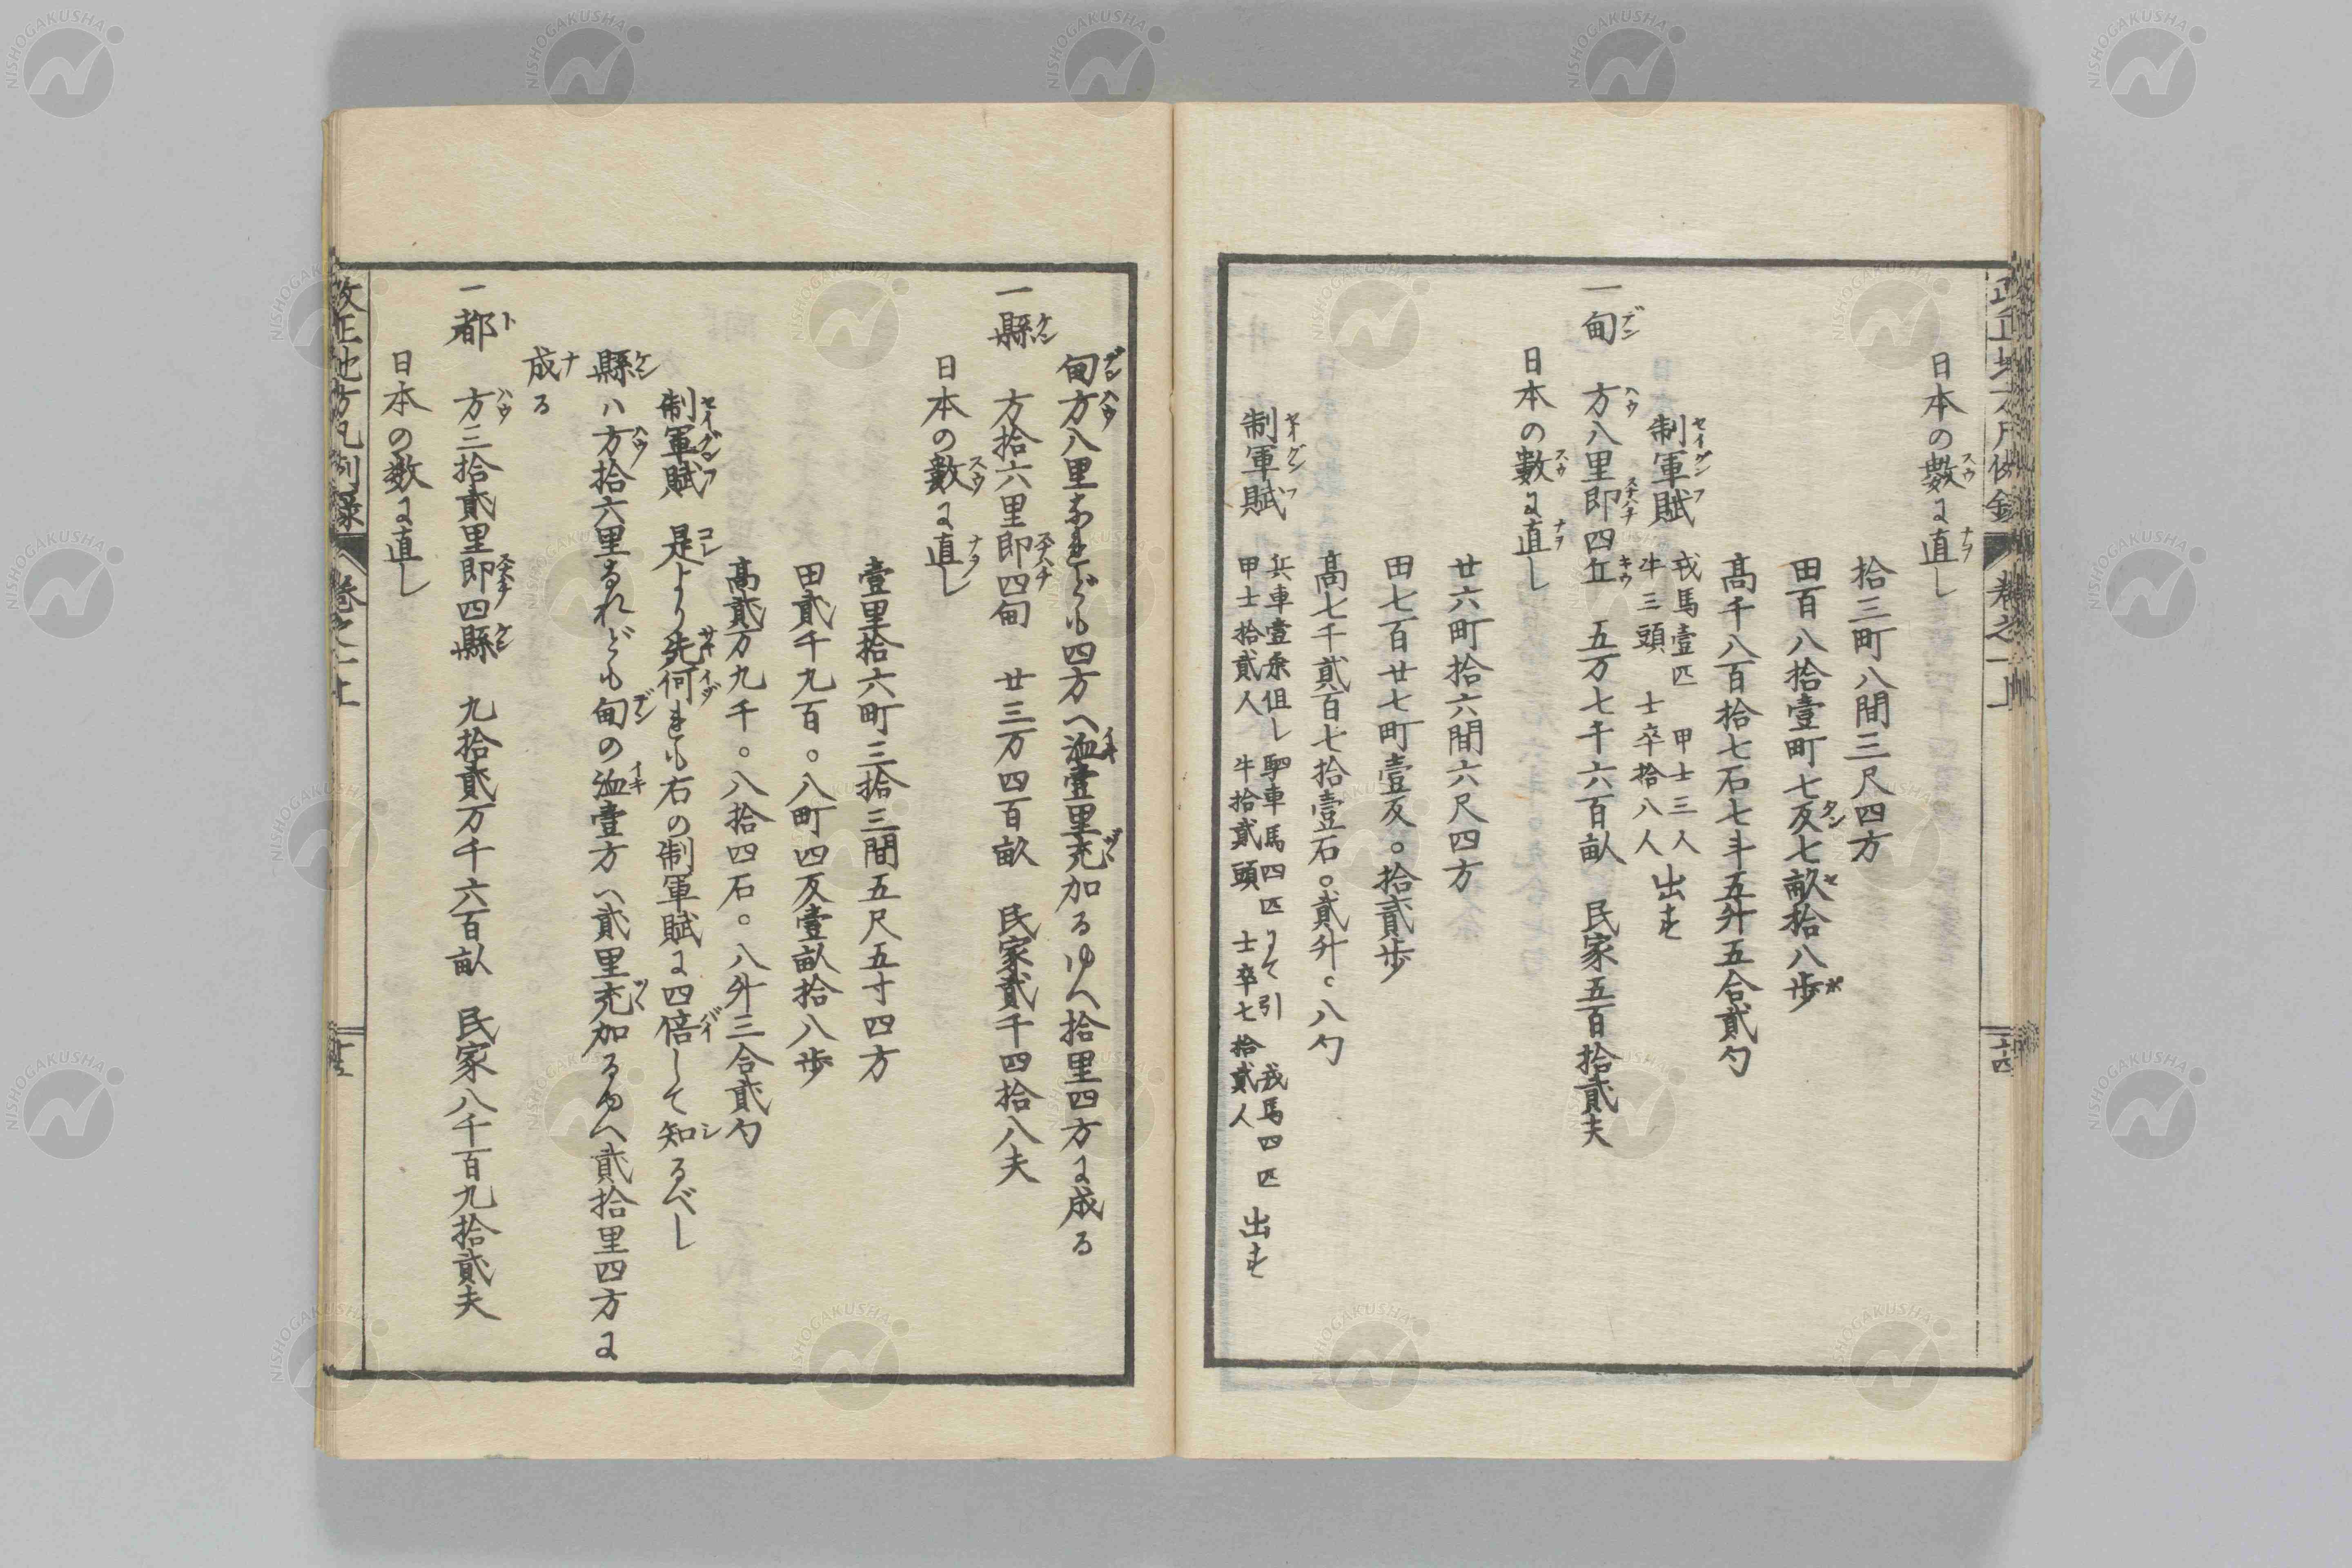 日本の數に直し
拾三町八間三尺四方
田百八拾壹町七反七畝拾八歩
高千八百拾七石七斗五升五合貳勺
制軍賦 戎馬壹匹 甲士三人
牛三頭 士卒拾八人 出す
一甸 方八里即四丘 五万七千六百畝 民家五百拾貳夫
日本の數に直し
廿六町拾六間六尺四方
田七百廿七町壹反。拾貳歩
高七千貳百七拾壹石。貳升。八勺
制軍賦 兵車壹乘但し駟車馬四匹にて引 戎馬四匹
甲士拾貳人 牛拾貳頭 士卒七拾貳人 出す
甸方八里あれども四方へ洫壹里充加るゆへ拾里四方に成る
一縣 方拾六里即四甸 廿三万四百畝 民家貳千四拾八夫
日本の數に直し
壹里拾六町三拾三間五尺五寸四方
田貳千九百。八町四反壹畝拾八歩
高貳万九千。八拾四石。八升三合貳勺
制軍賦 是より先何れも右の制軍賦に四倍して知るべし
縣ハ方拾六里あれども甸の洫壹方へ貳里充加るゆへ貳拾里四方に
成る
一都 方三拾貳里即四縣 九拾貳万千六百畝 民家八千百九拾貳夫
日本の数に直し
改正地方凡例録 卷之一上
NISHOGAKUSHA